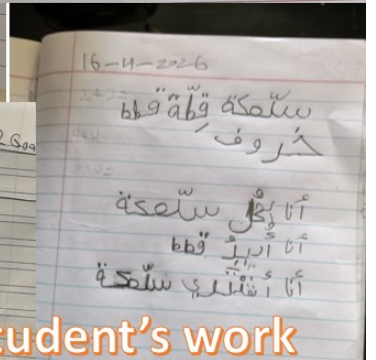 16-4-2026
سمكة قِطّة قطط
خروف
أنا أكل سمكة
أنا أُريدُ قطط
أنا أشتري سمكة
2 Goa
tudent's work